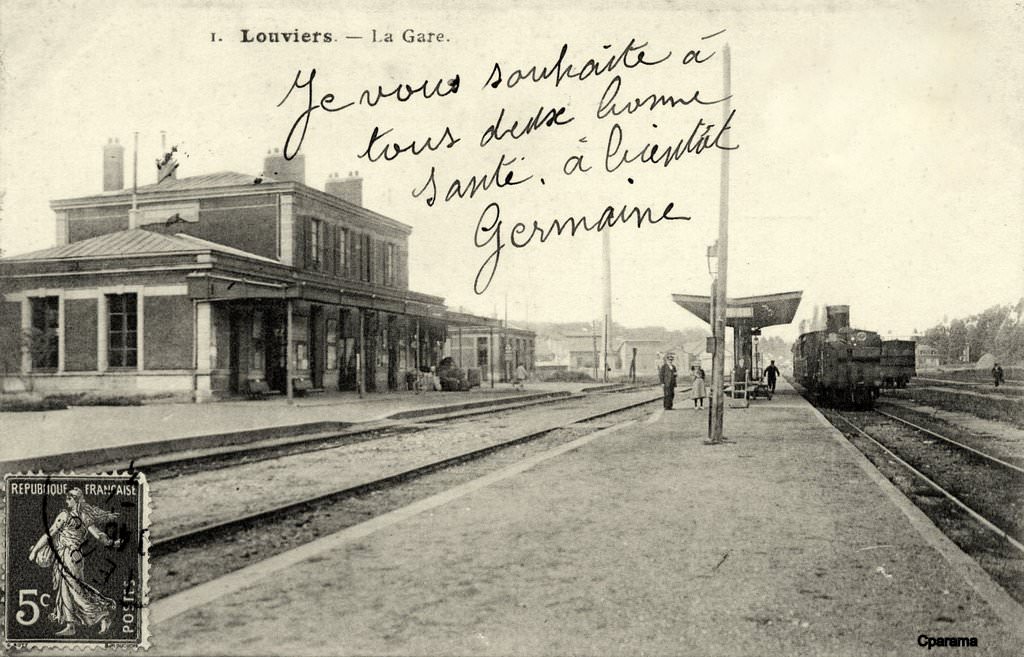 1. Louviers. — La Gare.
Je vous souhaite à
tous deux bonne
santé. à bientôt
Germaine
REPUBLIQUE FRANÇAISE
5c
POSTES
Cparama